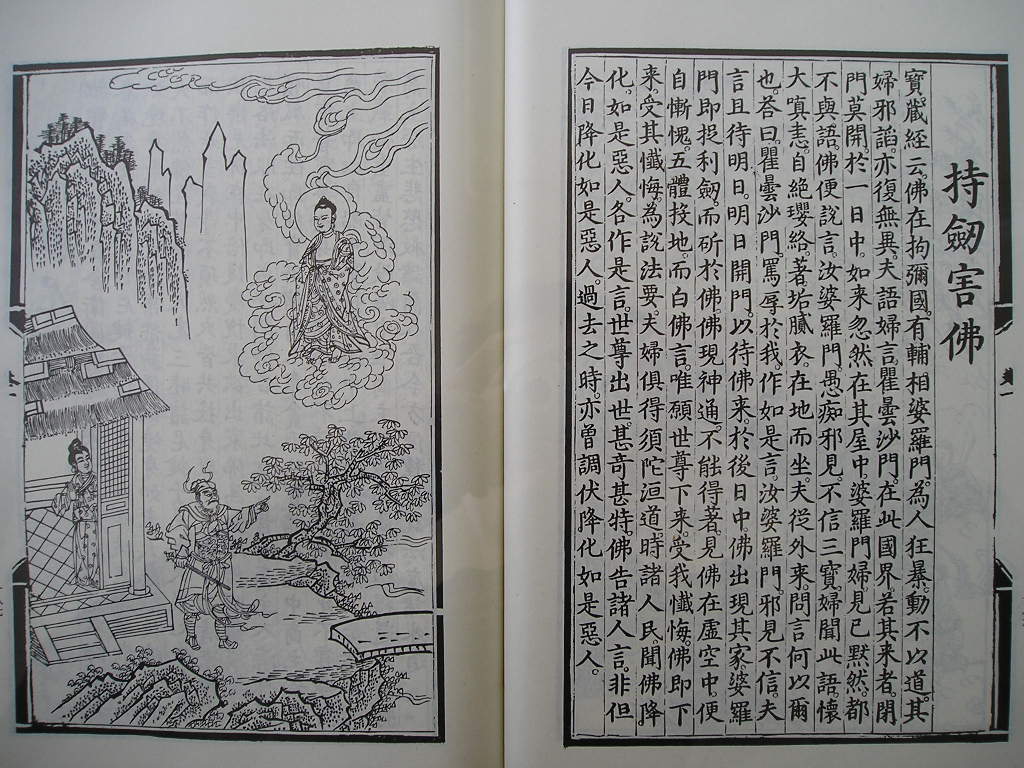 持劒害佛
寶藏經云。佛在拘彌國。有輔相婆羅門。為人狂暴。動不以道。其
婦邪謟。亦復無異。夫語婦言。瞿曇沙門。在此國界。若其來者。閉
門莫開。於一日中。如來忽然在其屋中。婆羅門婦見已默然。都
不與語。佛便說言。汝婆羅門。愚癡邪見。不信三寶。婦聞此語。懷
大嗔恚。自絕瓔絡。著垢膩衣。在地而坐。夫從外來。問言何以爾
也。荅曰。瞿曇沙門。罵辱於我。作如是言。汝婆羅門。邪見不信。夫
言且待明日。明日開門。以待佛來。於後日中。佛出現其家。婆羅
門即捉利劒。而斫於佛。佛現神通。不能得著。見佛在虛空中。便
自慚愧。五體投地。而白佛言。唯願世尊下來。受我懺悔。佛即下
來。受其懺悔。為說法要。夫婦俱得須陀洹道。時諸人民。聞佛降
化。如是惡人。各作是言。世尊出世。甚竒甚特。佛告諸人言。非但
今日降化如是惡人。過去之時。亦曾調伏降化如是惡人。